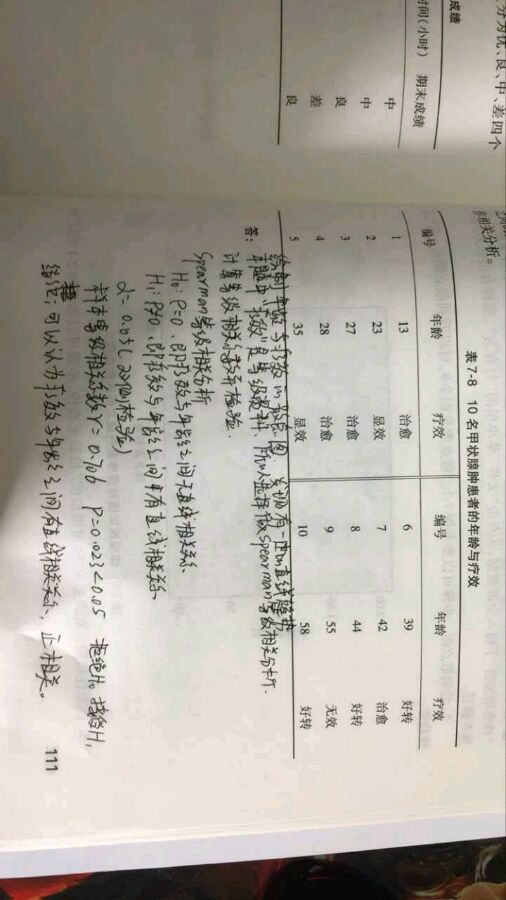 分为优、良、中、差四个
成绩
时间(小时) 期末成绩
中
中
良
差
良
相关分析。
表 7-8 10 名甲状腺肿患者的年龄与疗效
编号 年龄 疗效 编号 年龄 疗效
1 13 治愈 6 39 好转
2 23 显效 7 42 治愈
3 27 治愈 8 44 好转
4 28 治愈 9 55 无效
5 35 显效 10 58 好转
答:
绘制年龄与疗效的散点图,发现有一定的直线趋势
本题中"疗效"是等级资料,所以选择做spearman等级相关分析.
计算等级相关系数并检验.
Spearman等级相关分析
H₀: ρ=0,即疗效与年龄之间无直线相关关系
H₁: ρ≠0,即疗效与年龄之间有直线相关关系
α=0.05(双侧检验)
样本等级相关系数r=0.706 P=0.023<0.05 拒绝H₀ 接受H₁
结论:可以认为疗效与年龄之间有直线相关关系,正相关。
111